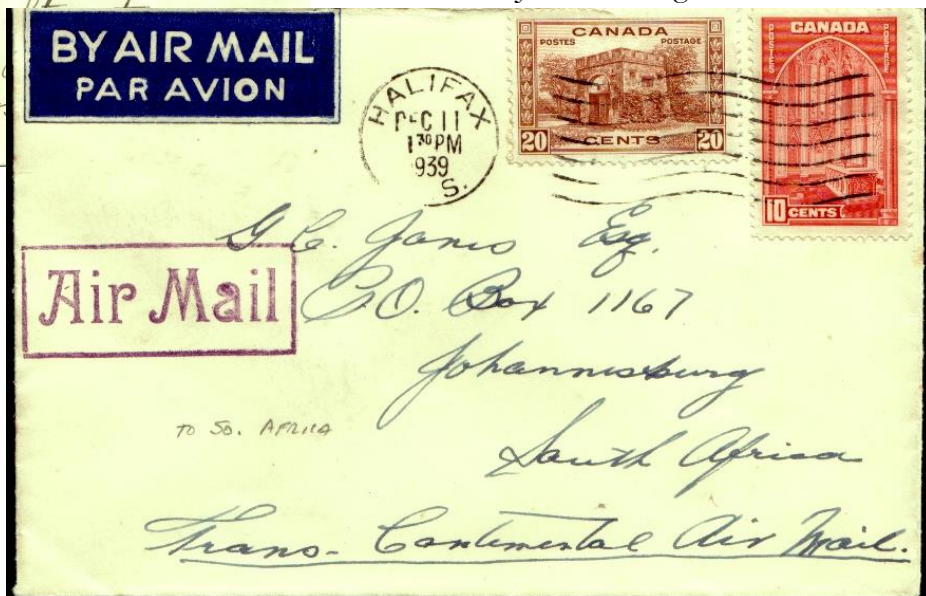 BY AIR MAIL
PAR AVION
HALIFAX
DEC 11
1 30 PM
939
S.
CANADA
POSTES POSTAGE
20 CENTS 20
CANADA
POSTES POSTAGES
10 CENTS
G. C. Jones Esq.
P.O. Box 1167
Air Mail
Johannesburg
TO SO. AFRICA
South Africa
Trans-Continental Air Mail.